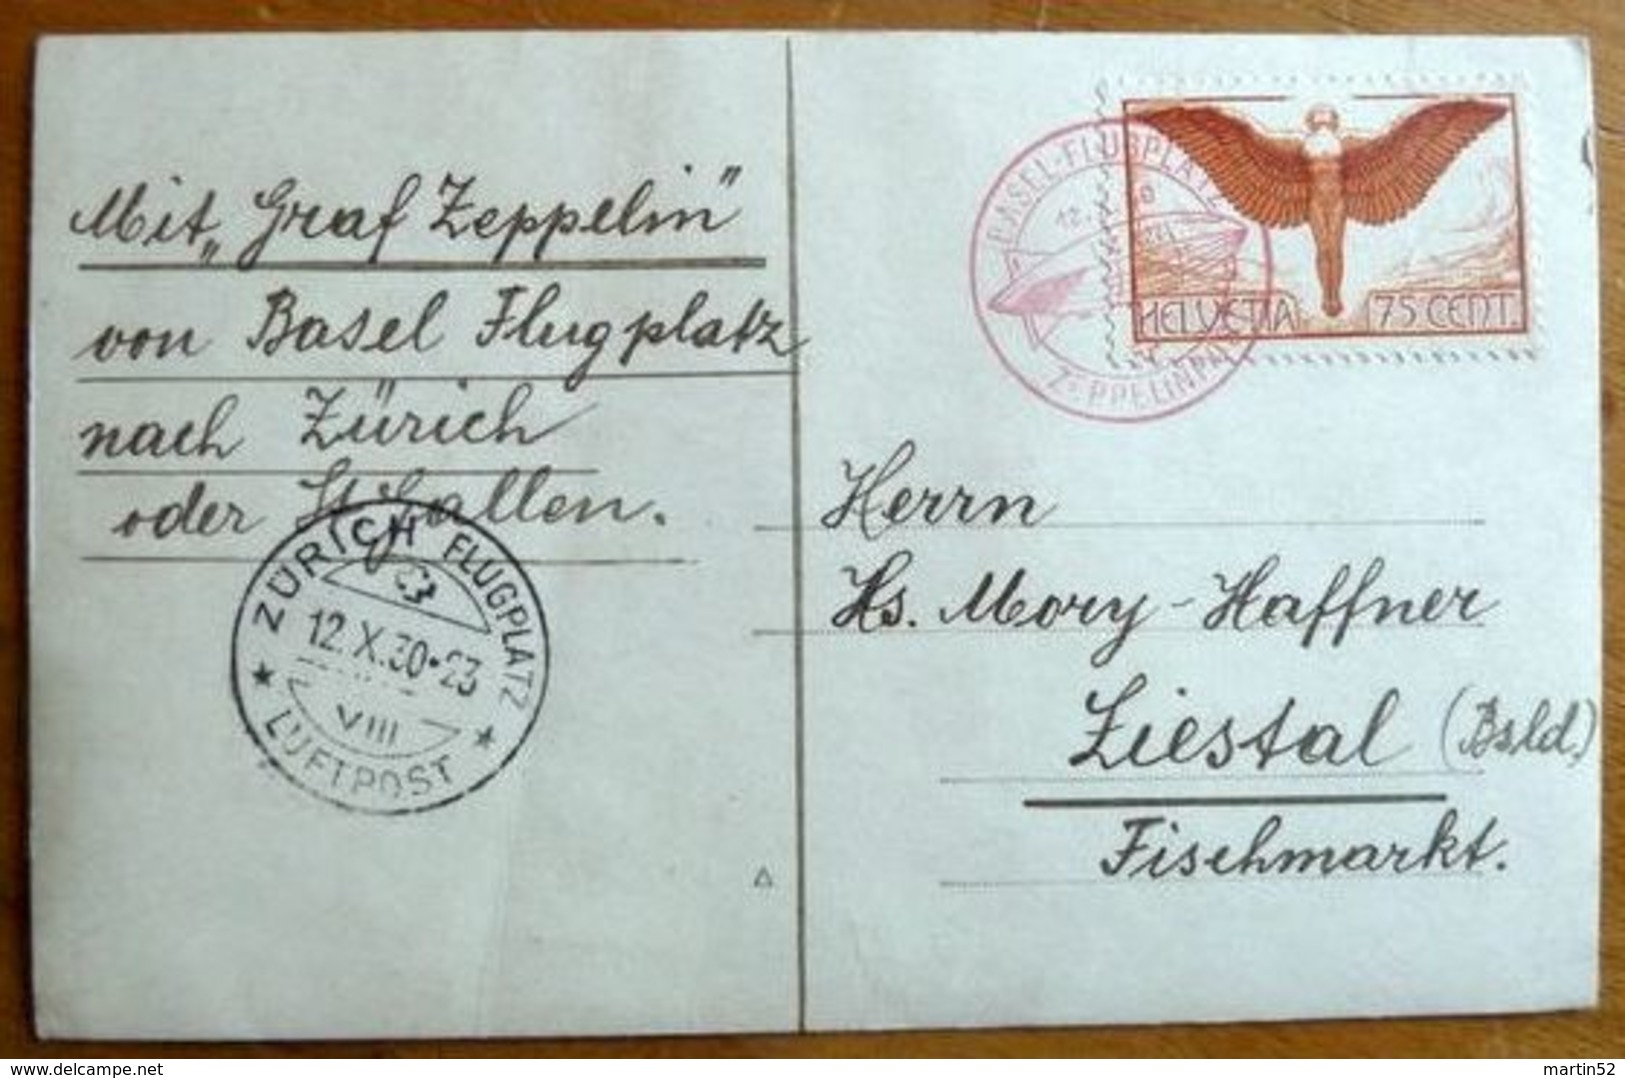 Mit „Graf Zeppelin"
von Basel Flugplatz
nach Zürich
oder St Gallen.
ZÜRICH FLUGPLATZ
12.X.30·23
VIII
LUFTPOST
BASEL-FLUGPLATZ
12.
ZEPPELINPA
HELVETIA 75 CENT.
Herrn
Hs. Mory-Haffner
Liestal (Bsld.)
Fischmarkt.
www.delcampe.net
martin52